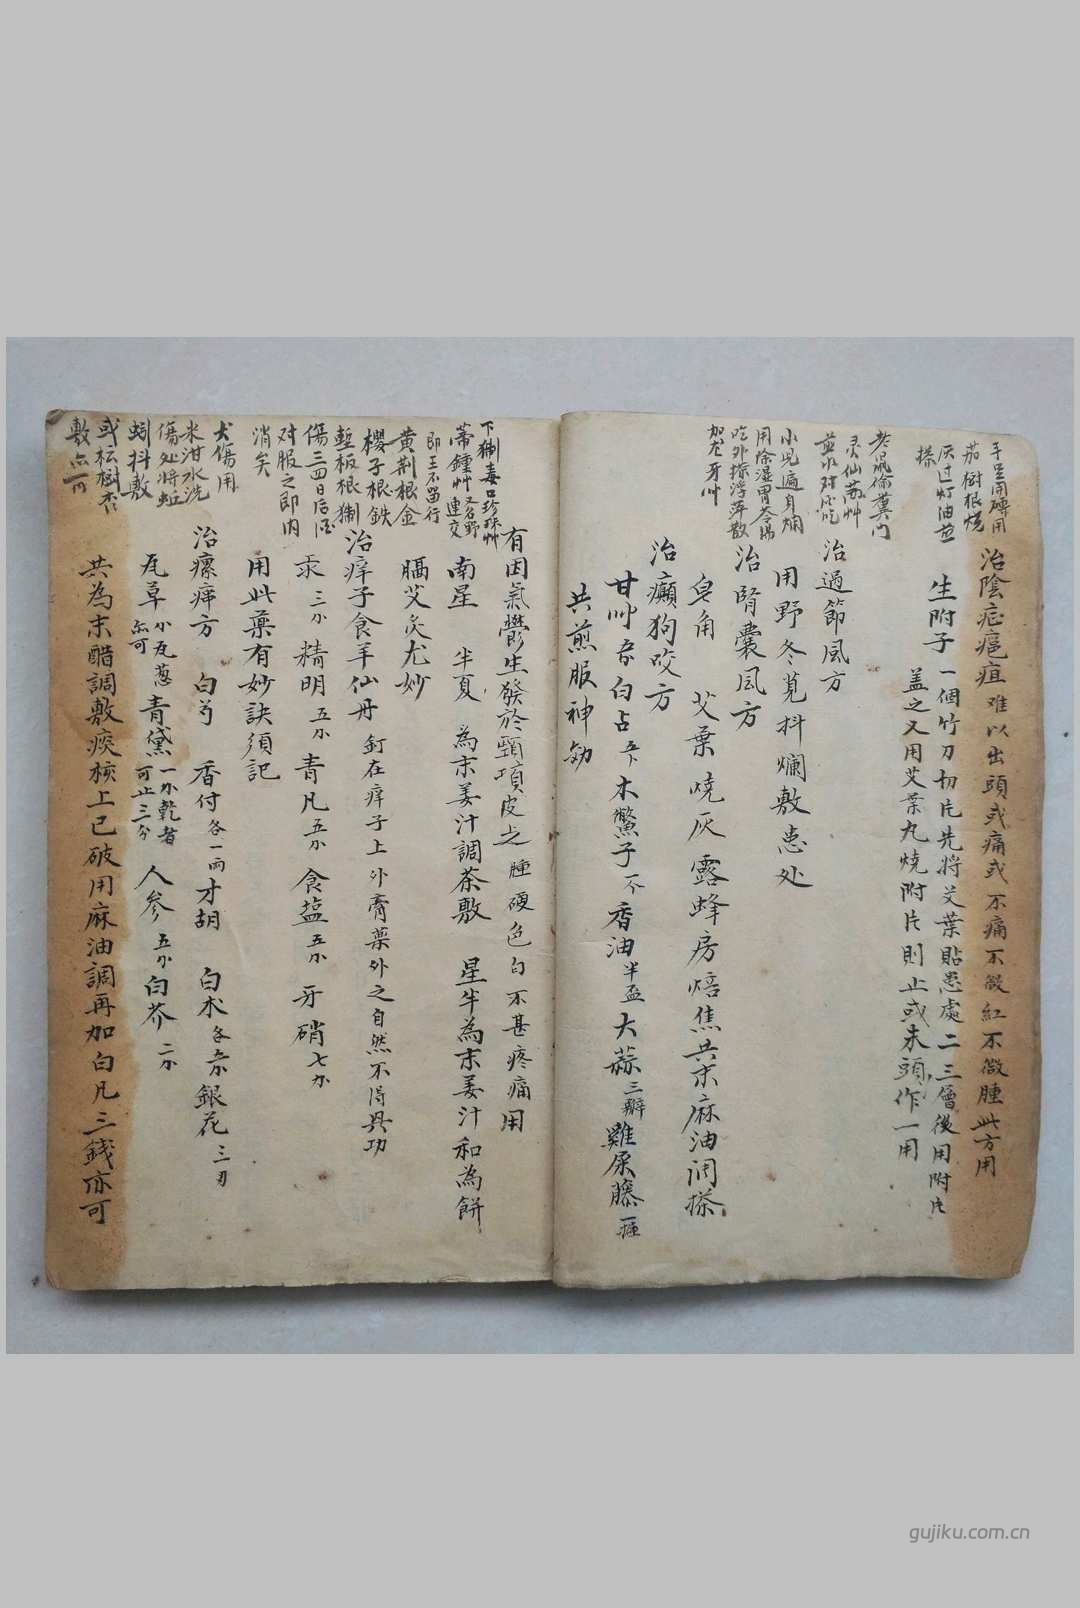 治陰疕疤疽难以出頭或痛或不痛不發紅不微腫此方用
生附子一個竹刀切片先將艾葉貼患處二三層後用附片
盖之又用艾葉丸燒附片則止或未頭作一用
治過節風方
用野冬莧抖爛敷患处
治腎囊風方
皂角 艾葉燒灰露蜂房焙焦共末麻油调搽
治癲狗咬方
甘艸 白占 木鱉子 香油半盃 大蒜三瓣 雞屎藤
共煎服神効
茄樹根燒
灰过灯油
搽
小児遍身爛
用除湿胃苓湯
吃外掠浮萍散
加龙牙艸
有因氣鬱生發於頸項皮上腫硬色白不甚疼痛用
南星 半夏 為末姜汁調茶敷 星半為末姜汁和為餅
膈艾灸尤妙
治痒子食羊仙丹 釘在痒子上外膏藥外之自然不渴具功
汞三小 精明五小 青凡五小 食盐五小 牙硝七小
用此藥有妙訣須記
治瘰痺方 白芍 香付各一両 才胡 白术各 銀花三刃
瓦草小瓦葱亦可 青黛一小乾者可止三分 人参五小 白芥二小
共為末醋調敷痰核上已破用麻油調再加白凡三錢亦可
下猘毒口珍珠艸
即王不畱行
黄荆根金
櫻子根鉄
板根猘
傷三四日后酒
对服之即内
消矣
犬傷用
米泔水洗
傷处將蚯
蚓抖敷
或枟樹
敷亦可
gujiku.com.cn